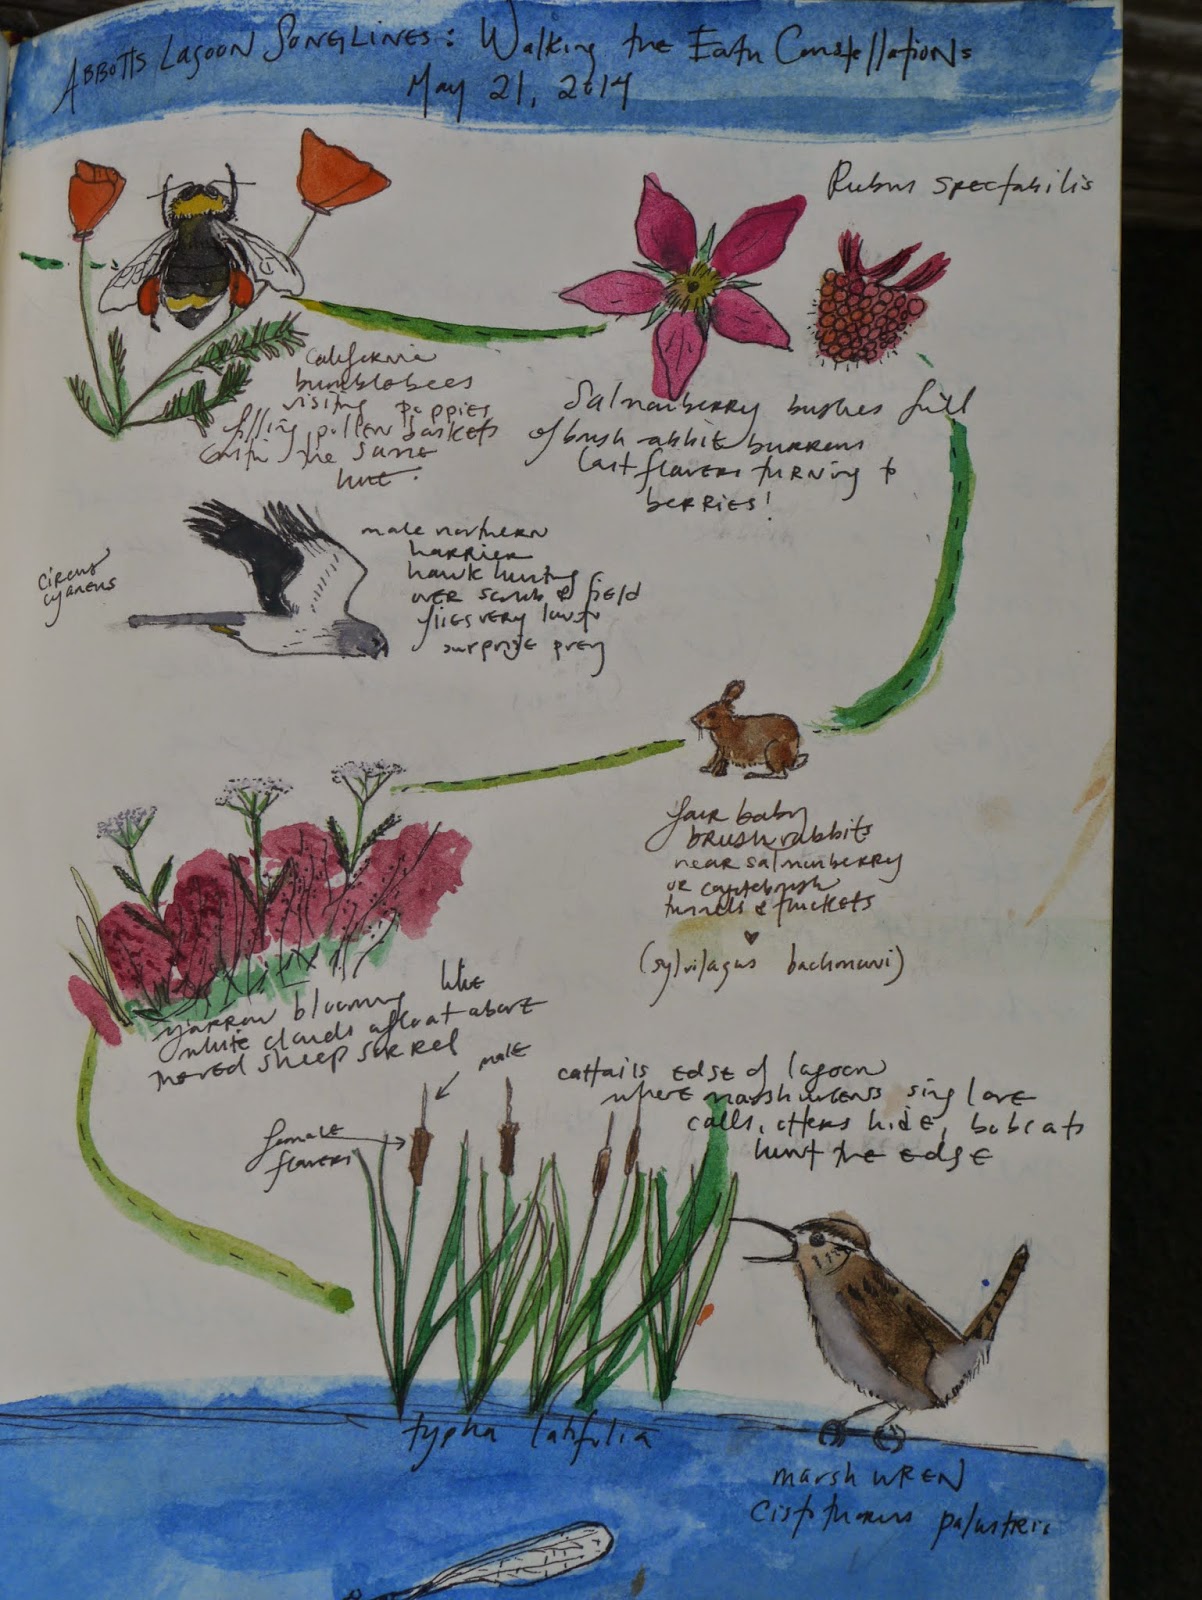 Abbotts Lagoon Songlines: Walking the Earth Constellations
May 21, 2014
Rubus spectabilis
California
bumblebees
visiting poppies
filling pollen baskets
the same
hue.
Salmonberry bushes full
of brush rabbit burrows
last flowers turning to
berries!
circus
cyaneus
male northern
harrier
hawk hunting
over scrub & field
flies very low to
surprise prey
four baby
brush rabbits
near salmonberry
or coyotebrush
tunnels & thickets
(sylvilagus bachmani)
yarrow blooming like
white clouds afloat above
the red sheep sorrel
male
female
flowers
cattails edge of lagoon
where marsh wrens sing love
calls, otters hide, bobcats
hunt the edge
typha latifolia
marsh wren
Cistothorus palustris